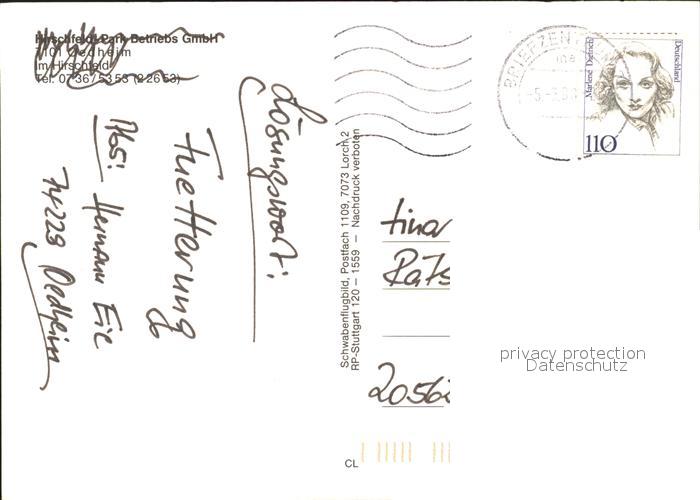 Hirschfeld-Park Betriebs GmbH
7101 Oedheim
Im Hirschfeld
Tel. 07136/5353 (22653)
Lösungswort:
Fuetterung
Abs: Hermann
74229 Oedheim
Schwabenflugbild, Postfach 1109, 7073 Lorch 2
RP-Stuttgart 120 – 1559 – Nachdruck verboten
CL
BRIEFZEN
Marlene Dietrich
Deutschland
110
tina
2056
privacy protection
Datenschutz